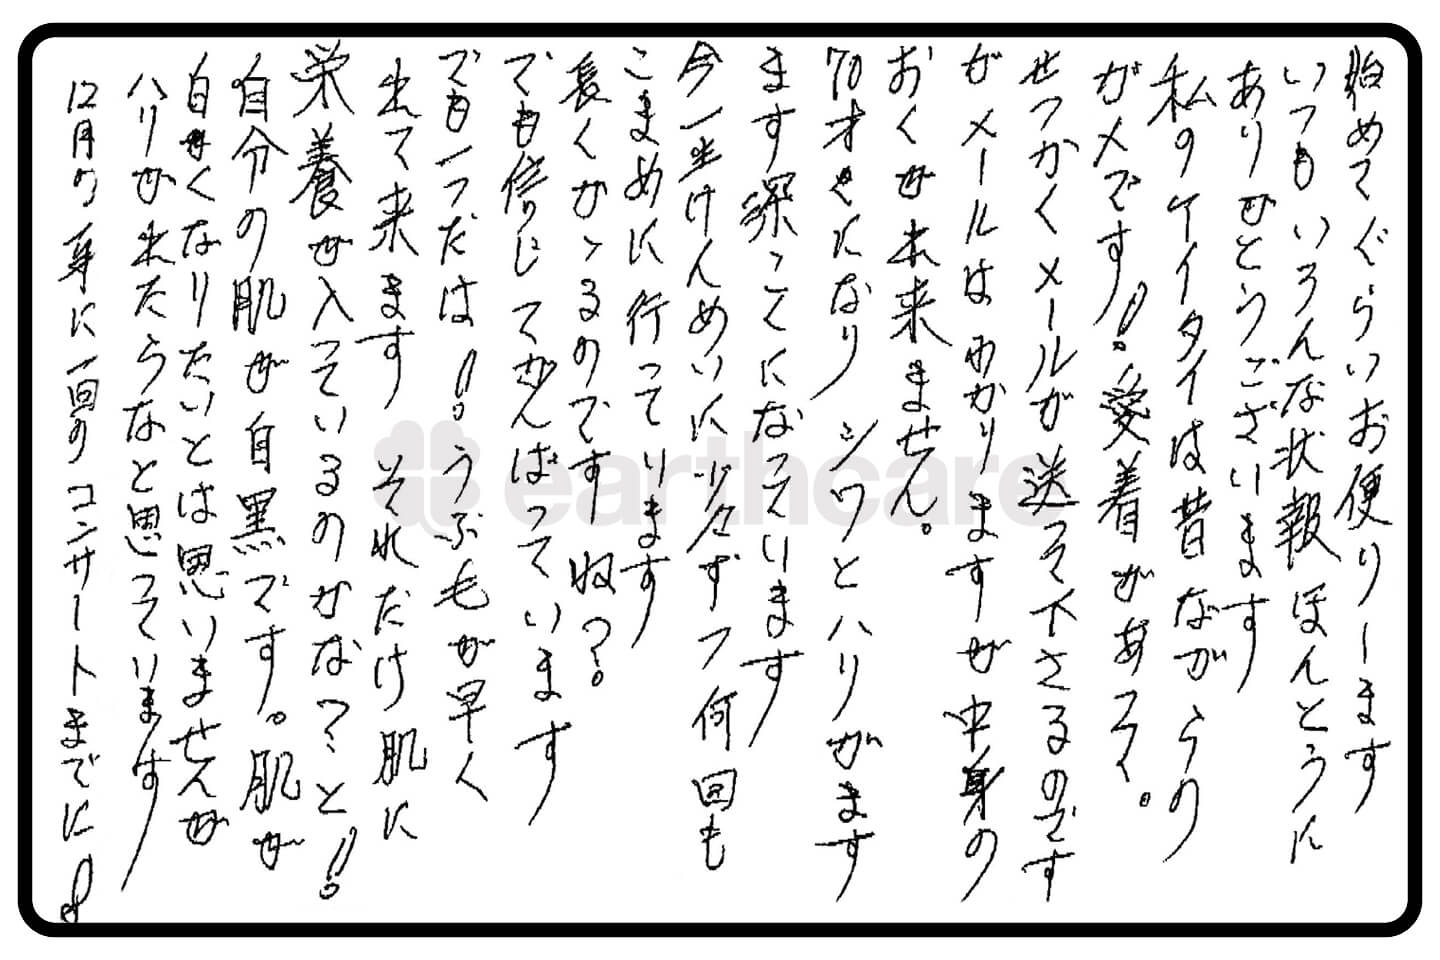 始めてぐらいお便りーします
いつもいろんな状報ほんとうに
ありがとうございます
私のケイタイは昔ながらの
ガメです!!愛着があるく。
せっかくメールが送って下さるのです
がメールはわかりますが中身の
おくが出来ません。
70才きになり シワとハリがます
ます深こくになっています
今一生けんめいに少々ずつ何回も
こまめに行っております
長くかゝるのです 収?
でも信じてがんばっています
でも一つだけは!!うぶ毛が早く
出て来ます それだけ肌に
栄養が入っているのかな?と!!
自分の肌が自黒です。肌が
白くなりたいとは思いませんが
ハリが出たらなと思っています
12月の 年に一回のコンサートまでに
earthcare